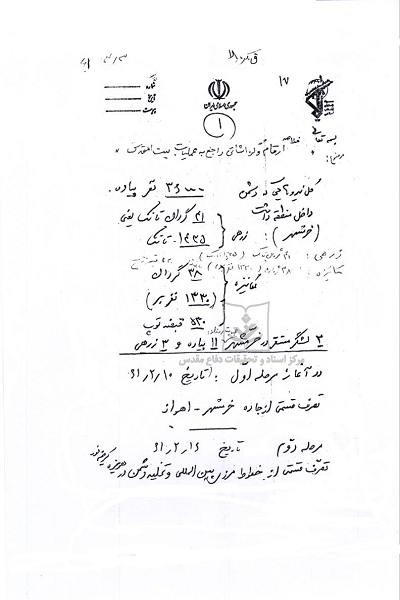 ۱۷
جمهوری اسلامی ایران
شماره
تاریخ
پیوست
۱
بسمه تعالی
خلاصه ارقام و راجع به عملیات بیت المقدس
کل نیروهایی که دشمن ۳۶۰۰۰ نفر پیاده.
داخل منطقه داشت ۴۱ گردان تانک یعنی
(خرمشهر): زرهی ۱۴۳۵ تانک
مکانیزه ۳۸ گردان
(۱۳۳۰ نفربر)
۵۳۰ قبضه توپ
مرکز اسناد و تحقیقات دفاع مقدس
۳ لشگر مستقر در خرمشهر ۱۱ پیاده و ۳ زرهی
در آغاز مرحله اول: (تاریخ ۶۱/۲/۱۰
تصرف قسمتی از جاده خرمشهر - اهواز
مرحله دوم تاریخ ۶۱/۲/۱۶
تصرف قسمتی از خطوط مرزی بین المللی و تخلیه دشمن در